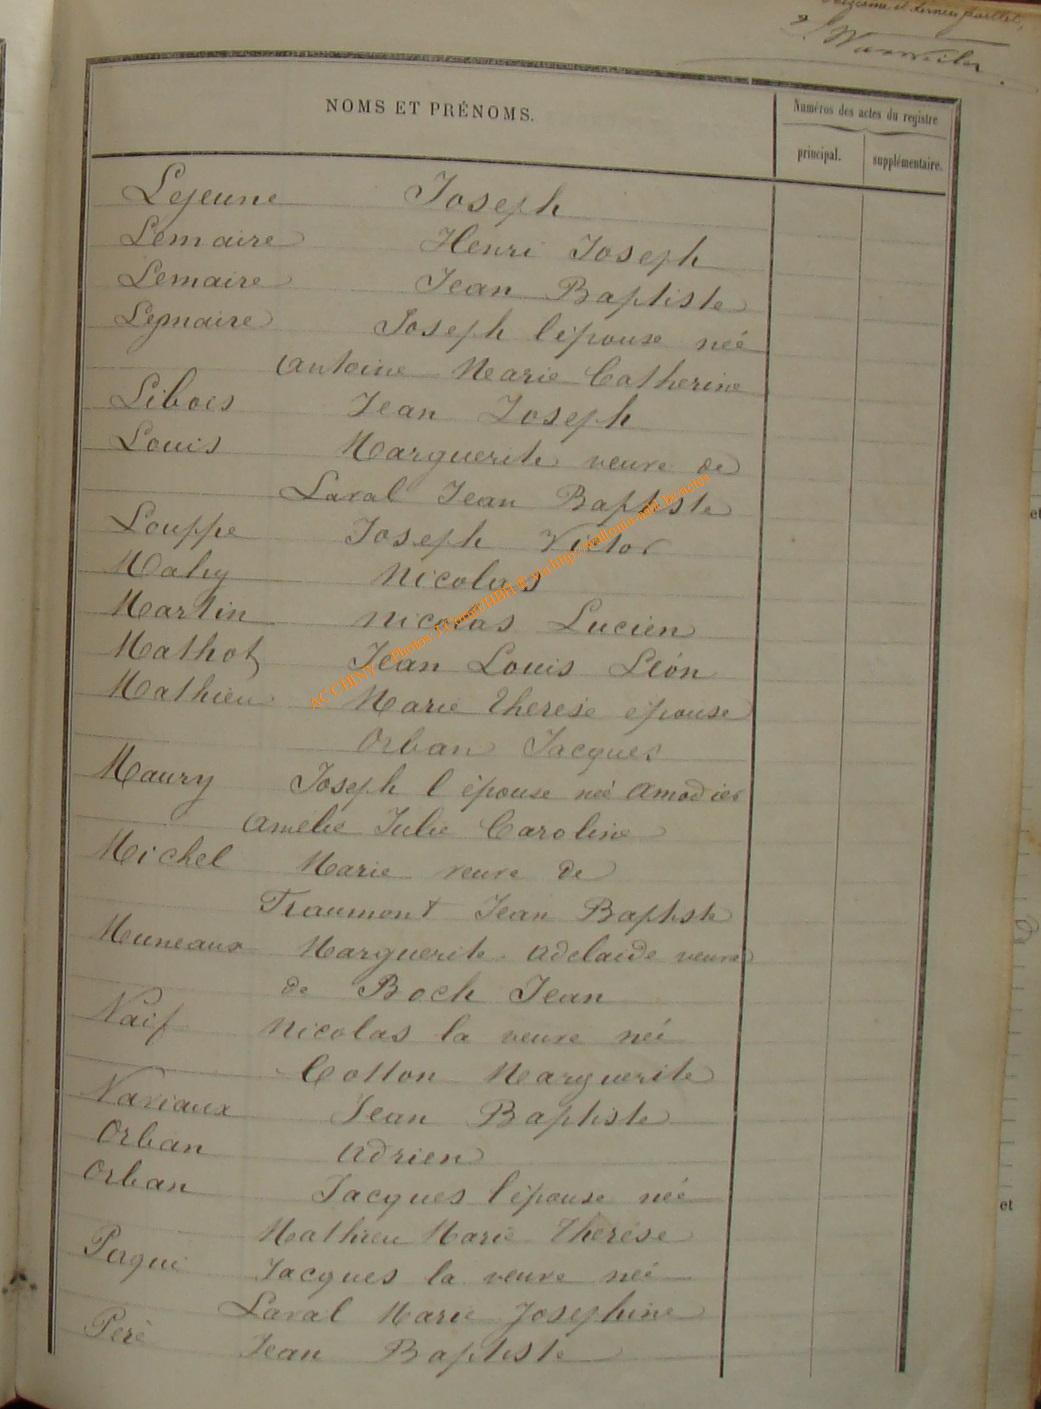 et dernier feuillet,
NOMS ET PRÉNOMS.
Numéros des actes du registre
principal. supplémentaire.
Lejeune Joseph
Lemaire Henri Joseph
Lemaire Jean Baptiste
Lemaire Joseph l'épouse née
Antoine Marie Catherine
Libois Jean Joseph
Louis Marguerite veuve de
Laval Jean Baptiste
Louppe Joseph Victor
Mahy Nicolas
Martin Nicolas Lucien
Mathot Jean Louis Léon
Mathieu Marie Thérèse épouse
Orban Jacques
Maury Joseph l'épouse née Amodier
Amélie Julie Caroline
Michel Marie veuve de
Traumont Jean Baptiste
Muneaux Marguerite Adelaïde veuve
de Boch Jean
Naif Nicolas la veuve née
Cotton Marguerite
Naviaux Jean Baptiste
Orban Adrien
Orban Jacques l'épouse née
Mathieu Marie Thérèse
Jacques la veuve née
Laval Marie Josephine
Peré Jean Baptiste
et
et